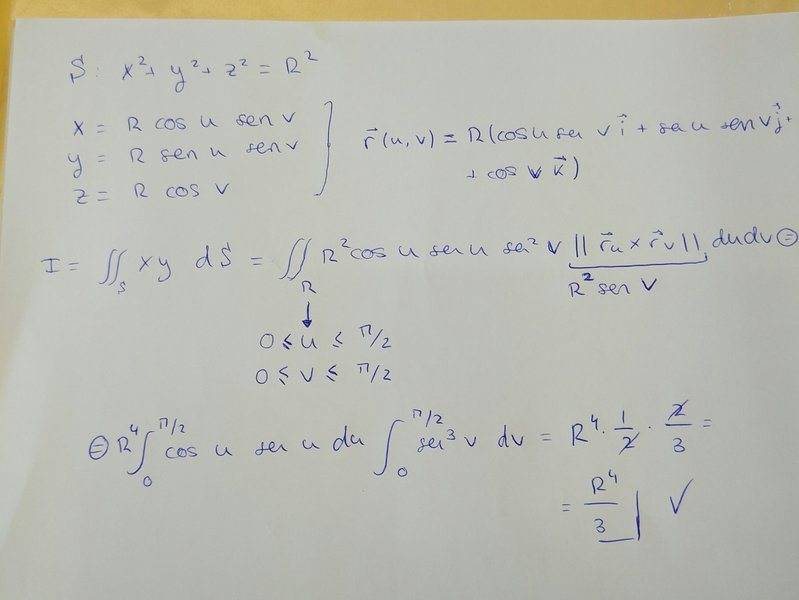 S: x² + y² + z² = R²
x = R cos u sen v
y = R sen u sen v
z = R cos v
r⃗(u, v) = R(cos u sen v i⃗ + sen u sen v j⃗ +
+ cos v k⃗)
I = ∬_S xy dS = ∬_R R² cos u sen u sen² v ||r⃗u × r⃗v|| du dv ⊜
R² sen v
↓
0 ≤ u ≤ π/2
0 ≤ v ≤ π/2
⊜ R⁴ ∫₀^(π/2) cos u sen u du ∫₀^(π/2) sen³ v dv = R⁴ · 1/2 · 2/3 =
= R⁴/3 ✓